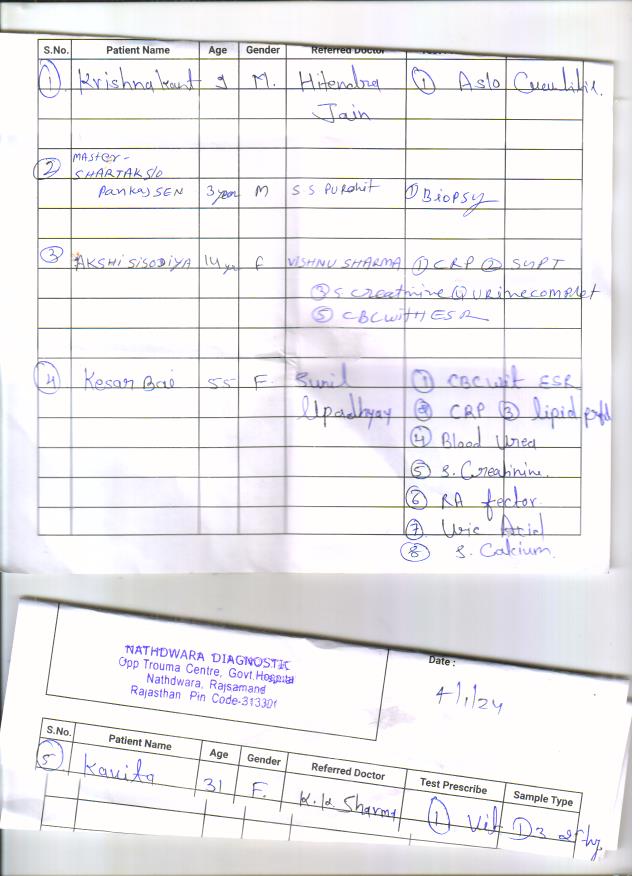 S.No. Patient Name Age Gender Referred Doctor
① Krishnakant 9 M. Hitendra ① Aslo
Jain
② MASTER-
SHARTAK S/o
PANKAJ SEN 3 year M S S PUROHIT ① Biopsy
③ AKSHI SISODIYA 14 yr F VISHNU SHARMA ① CRP ② SGPT
③ S creatnine ④ URINE complet
⑤ CBC with ESR
④ Kesar Bai 55 F. Sunil ① CBC wit ESR
Upadhyay ② CRP ③ lipid
④ Blood Urea
⑤ S. Creatinine.
⑥ RA fector.
⑦ Uric Acid
⑧ S. Calcium.
NATHDWARA DIAGNOSTIC
Opp Trouma Centre, Govt. Hospital
Nathdwara, Rajsamand
Rajasthan Pin Code-313301
Date :
4/1/24
S.No. Patient Name Age Gender Referred Doctor Test Prescribe Sample Type
⑤ Kavita 31 F. K.K Sharma ① Vit D3